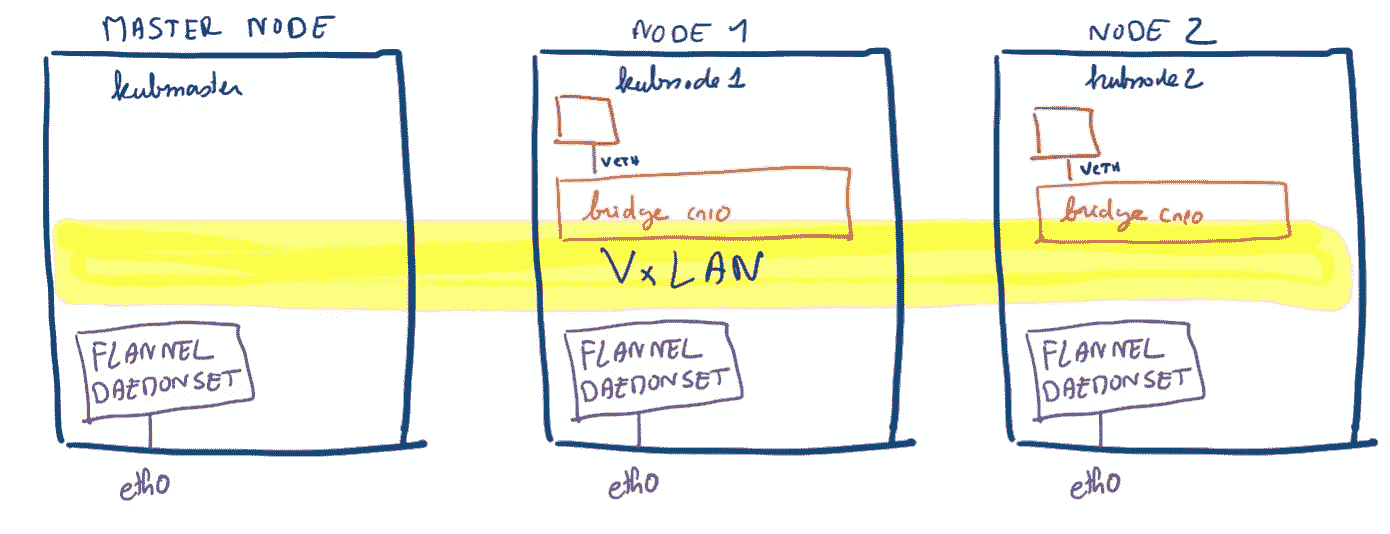 MASTER NODE
kubmaster
FLANNEL
DAEMONSET
eth0
NODE 1
kubnode1
VETH
bridge cni0
VxLAN
FLANNEL
DAEMONSET
eth0
NODE 2
kubnode2
VETH
bridge cni0
FLANNEL
DAEMONSET
eth0